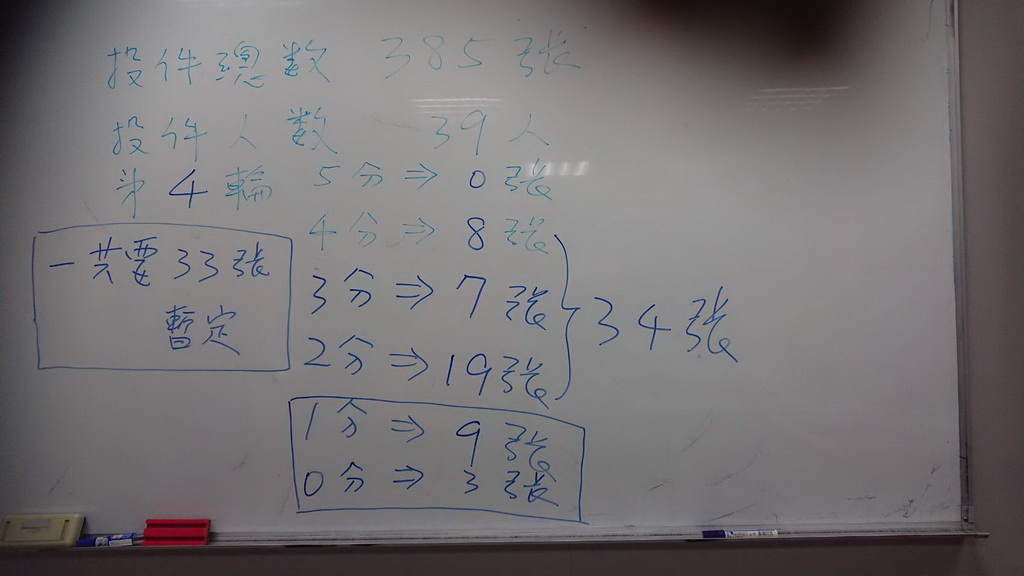 投件總数 385張
投件人数 39人
第4輪 5分⇒0張
4分⇒8張
一共要33張
暫定
3分⇒7張
2分⇒19張
34張
1分⇒9張
0分⇒3張